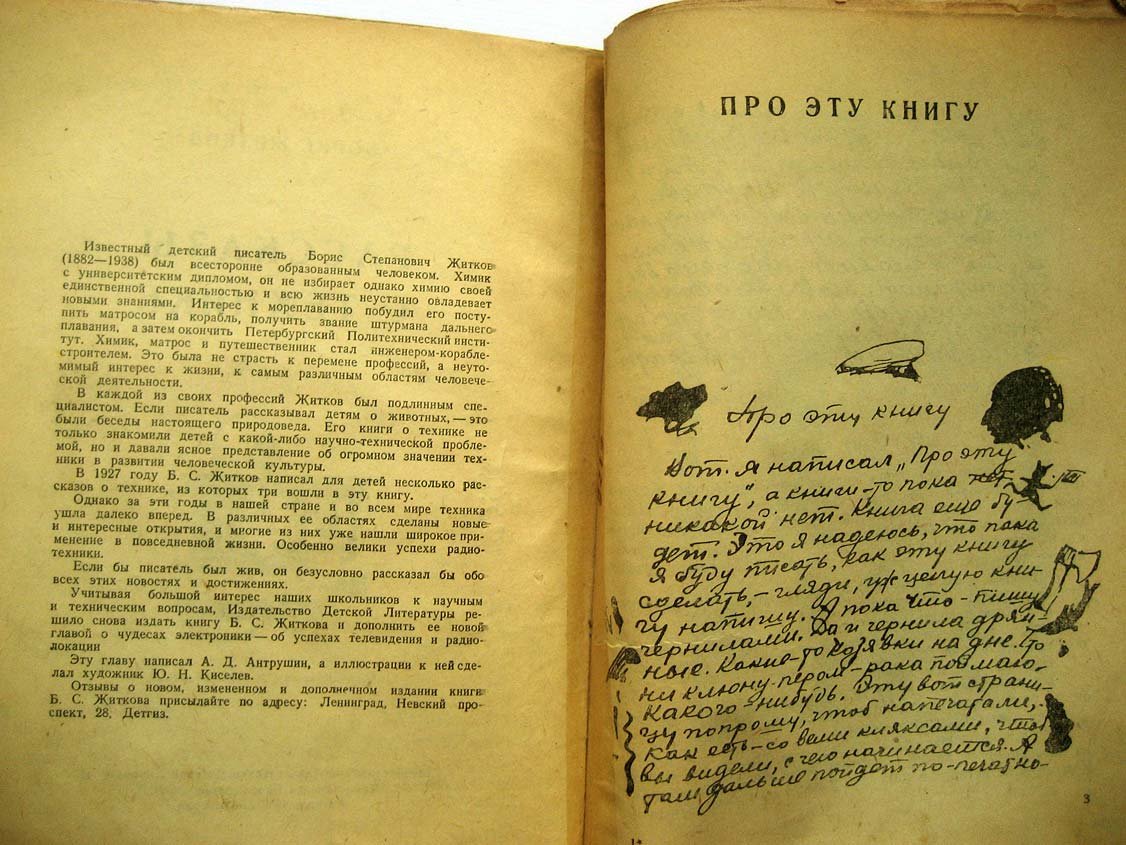 Известный детский писатель Борис Степанович Житков
(1882—1938) был всесторонне образованным человеком. Химик
с университетским дипломом, он не избирает однако химию своей
единственной специальностью и всю жизнь неустанно овладевает
новыми знаниями. Интерес к мореплаванию побудил его посту-
пить матросом на корабль, получить звание штурмана дальнего
плавания, а затем окончить Петербургский Политехнический инсти-
тут. Химик, матрос и путешественник стал инженером-корабле-
строителем. Это была не страсть к перемене профессий, а неуто-
мимый интерес к жизни, к самым различным областям человече-
ской деятельности.
В каждой из своих профессий Житков был подлинным спе-
циалистом. Если писатель рассказывал детям о животных, — это
были беседы настоящего природоведа. Его книги о технике не
только знакомили детей с какой-либо научно-технической пробле-
мой, но и давали ясное представление об огромном значении тех-
ники в развитии человеческой культуры.
В 1927 году Б. С. Житков написал для детей несколько рас-
сказов о технике, из которых три вошли в эту книгу.
Однако за эти годы в нашей стране и во всем мире техника
ушла далеко вперед. В различных ее областях сделаны новые
и интересные открытия, и многие из них уже нашли широкое при-
менение в повседневной жизни. Особенно велики успехи радио-
техники.
Если бы писатель был жив, он безусловно рассказал бы обо
всех этих новостях и достижениях.
Учитывая большой интерес наших школьников к научным
и техническим вопросам, Издательство Детской Литературы ре-
шило снова издать книгу Б. С. Житкова и дополнить ее новой
главой о чудесах электроники — об успехах телевидения и радио-
локации
Эту главу написал А. Д. Антрушин, а иллюстрации к ней сде-
лал художник Ю. Н. Киселев.
Отзывы о новом, измененном и дополненном издании книги
Б. С. Житкова присылайте по адресу: Ленинград, Невский про-
спект, 28, Детгиз.
ПРО ЭТУ КНИГУ
Про эту книгу
Вот. Я написал „Про эту
книгу", а книги-то пока нет
никакой нет. Книга еще бу-
дет. Это я надеюсь, что пока
я буду писать, как эту книгу
сделать, — гляди, уж целую кни-
гу напишу. А пока что — пишу
чернилами. Да и чернила дрян-
ные. Какие-то козявки на дне. То
и клюну пером — рака поймаю
какого-нибудь. Эту вот страни-
цу попрошу, чтоб напечатали,
как есть — со всеми кляксами, чтоб
вы видели, с чего начинается. А
там дальше пойдет по-печатно-
3
1*